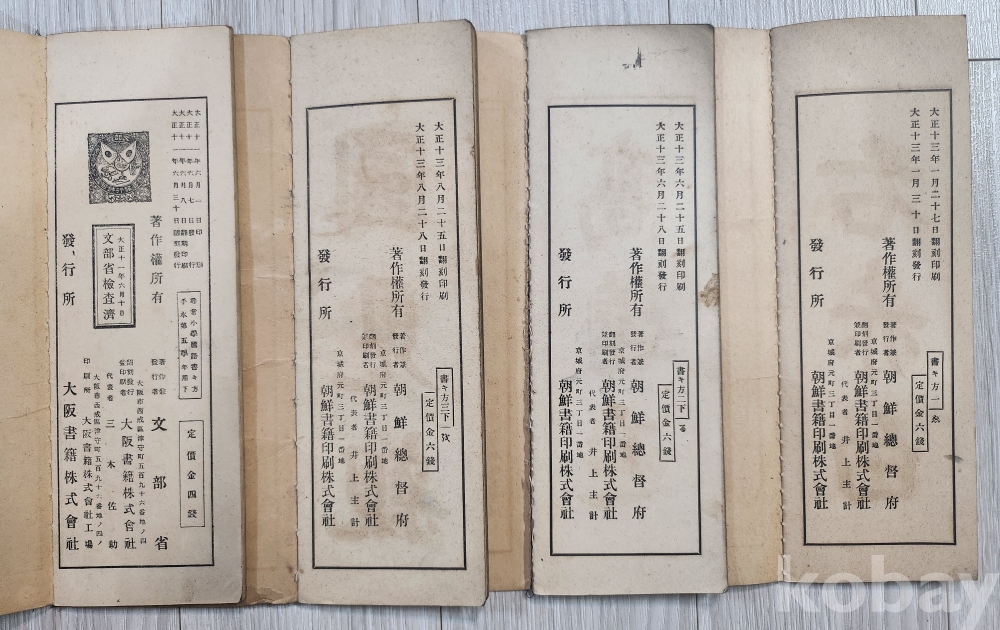 大正十三年一月二十七日翻刻印刷
大正十三年一月三十日翻刻發行
著作權所有
發行所
書キ方一
定價金六錢
著作兼
發行者
朝鮮總督府
翻刻發行
兼印刷者
京城府元町三丁目一番地
朝鮮書籍印刷株式會社
代表者 井上主計
京城府元町三丁目一番地
朝鮮書籍印刷株式會社
大正十三年六月二十五日翻刻印刷
大正十三年六月二十八日翻刻發行
著作權所有
發行所
書キ方二下
定價金六錢
著作兼
發行者
朝鮮總督府
翻刻發行
兼印刷者
京城府元町三丁目一番地
朝鮮書籍印刷株式會社
代表者 井上主計
京城府元町三丁目一番地
朝鮮書籍印刷株式會社
大正十三年八月二十五日翻刻印刷
大正十三年八月二十八日翻刻發行
著作權所有
發行所
書キ方三下
定價金六錢
著作兼
發行者
朝鮮總督府
翻刻發行
兼印刷者
京城府元町三丁目一番地
朝鮮書籍印刷株式會社
代表者 井上主計
京城府元町三丁目一番地
朝鮮書籍印刷株式會社
大正十一年六月一日印刷
大正十一年六月七日發行
大正十一年六月八日翻刻印刷
大正十一年六月三十日翻刻發行
著作權所有
大正十一年六月十日
文部省檢査濟
發行所
尋常小學國語書キ方
手本第五學年用下
定價金四錢
著作兼
發行者
文部省
翻刻發行
兼印刷者
大阪市西成區津守町五百九十六番地ノ四
大阪書籍株式會社
代表者 三木佐助
大阪市西成區津守町五百九十六番地ノ四
印刷所 大阪書籍株式會社工場
大阪書籍株式會社
kobay